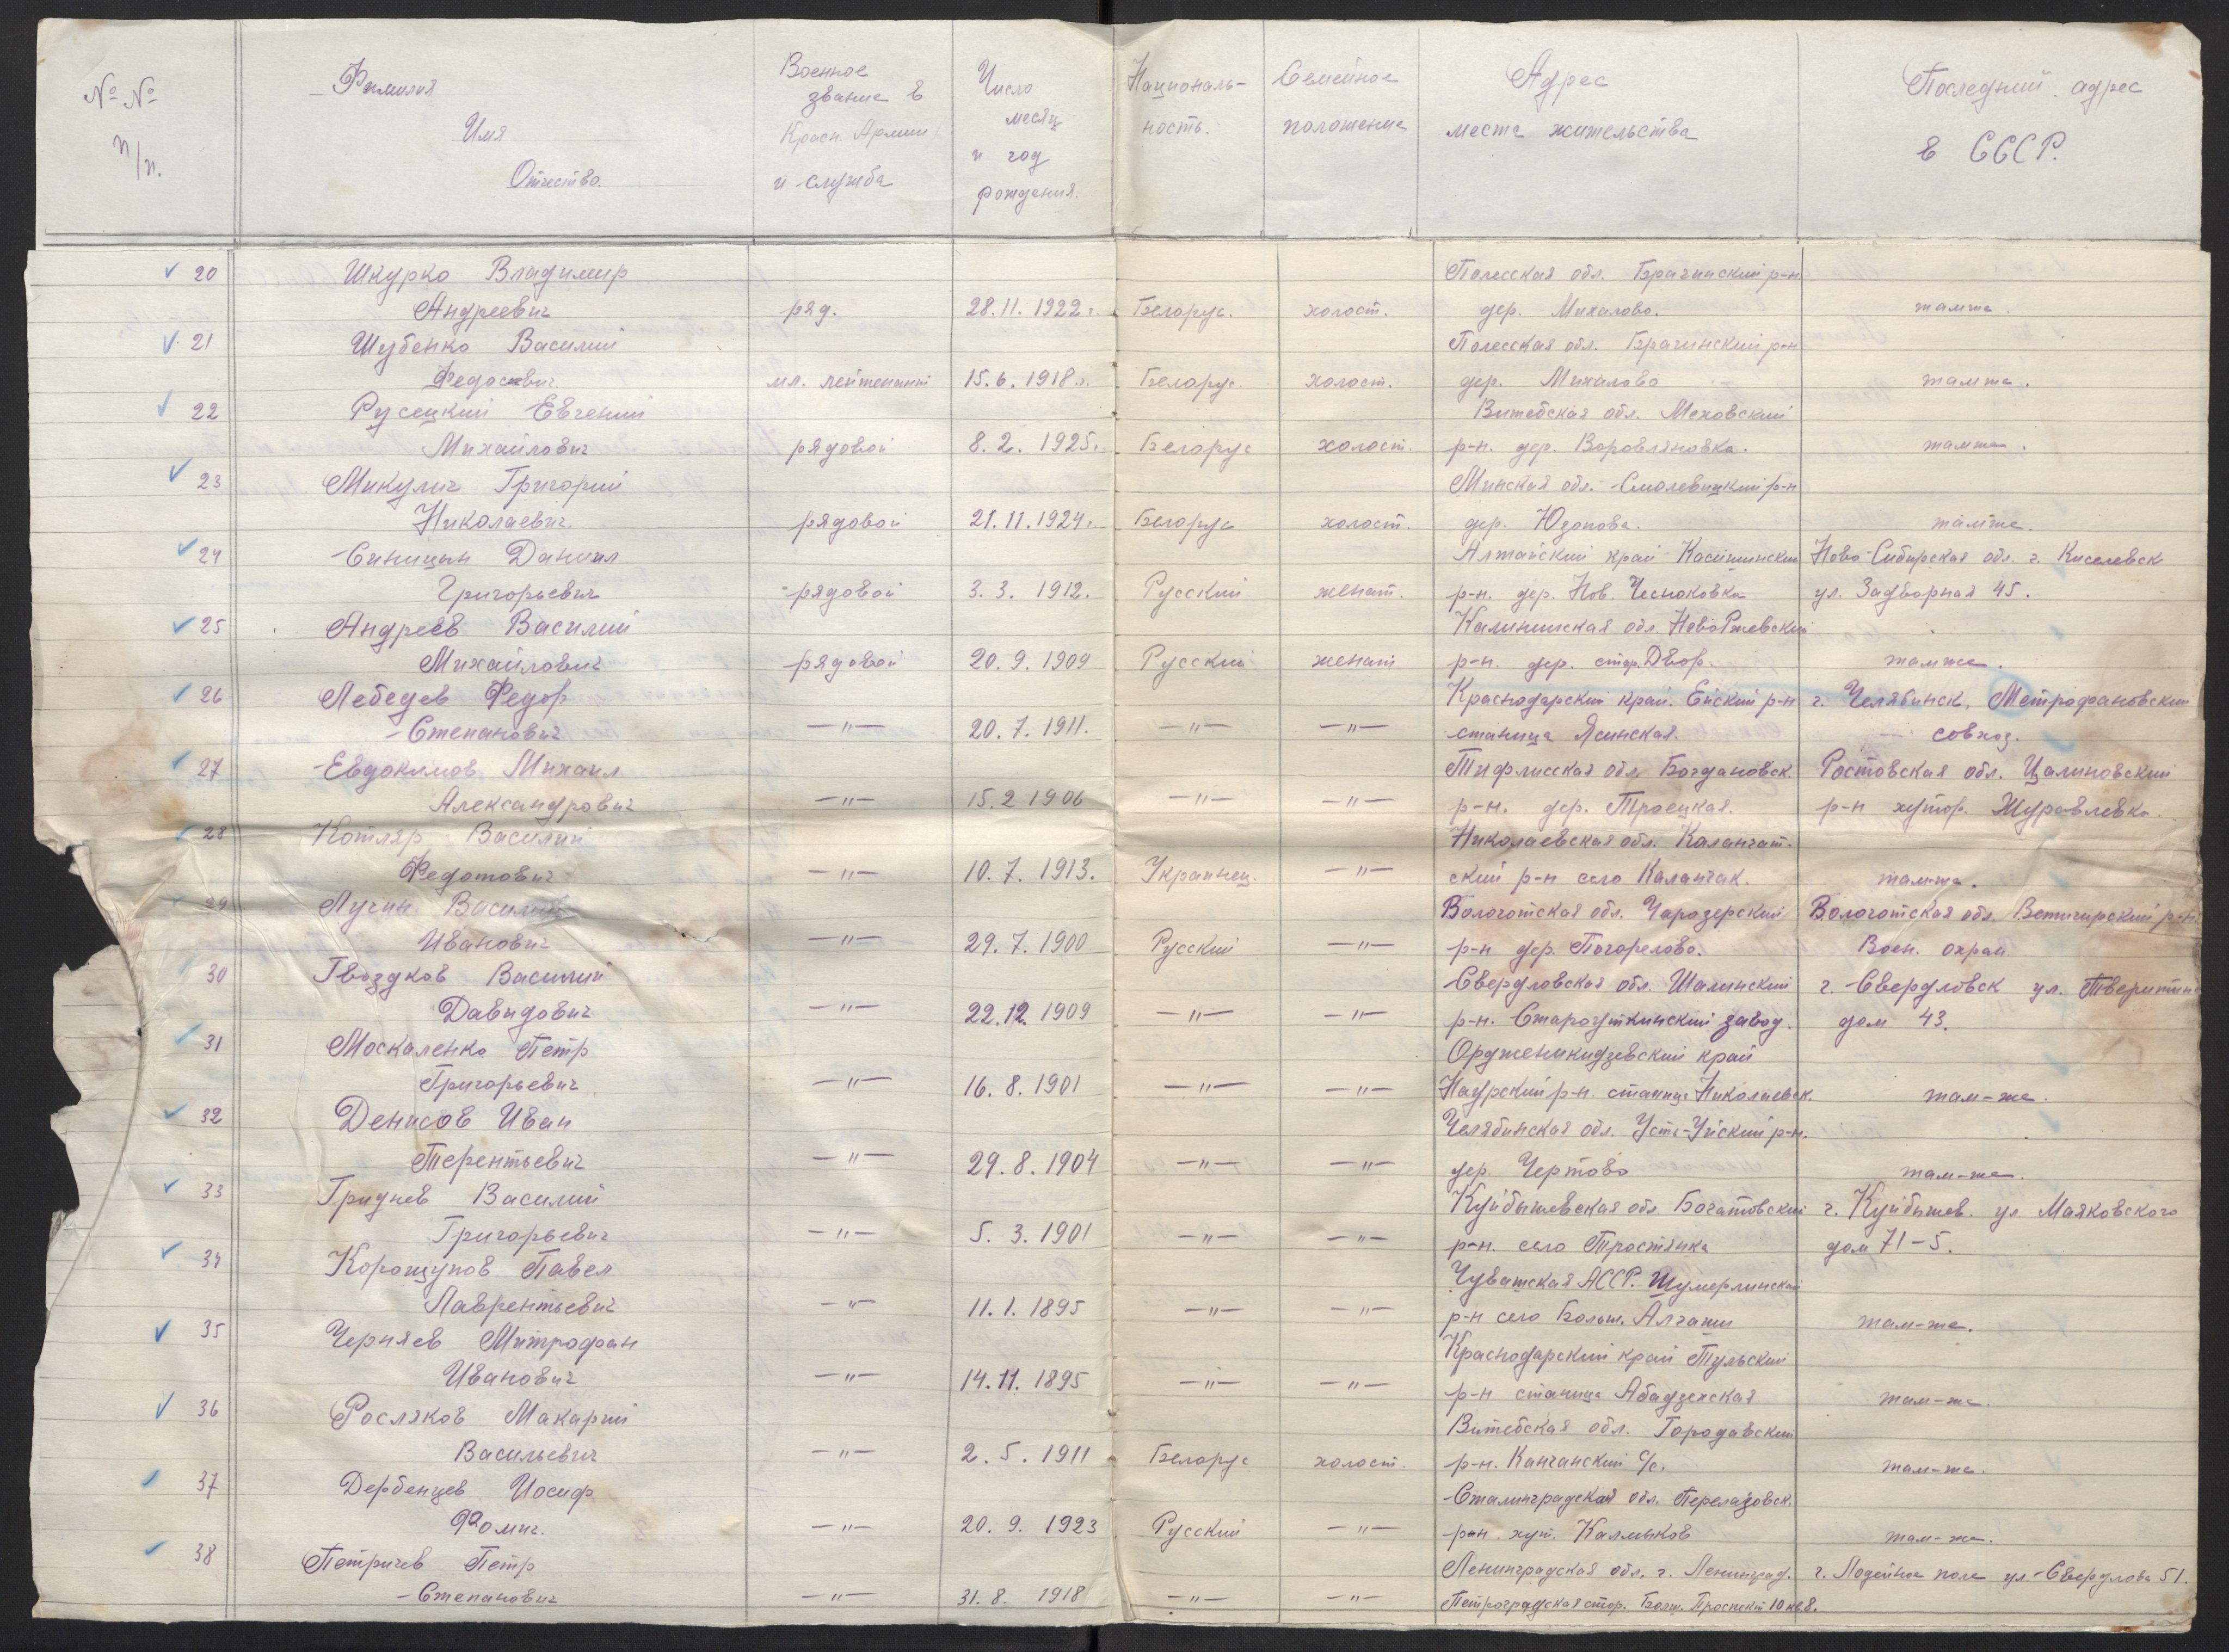 № №
п/п.
Фамилия
Имя
Отчество.
Военное
звание в
Красн. Армии
и служба
Число
месяц
и год
рождения.
Националь-
ность.
Семейное
положение
Адрес
места жительства
Последний адрес
в СССР.
20 Шкурко Владимир Полесская обл. Брагинский р-н
Андреевич ряд. 28.11.1922 г. Белорус. холост. дер. Михалово. тамже.
21 Шубенко Василий Полесская обл. Брагинский р-н
мл. лейтенант 15.6.1918 г. Белорус. холост. дер. Михалово тамже.
22 Русецкий Евгений Витебская обл. Меховский
Михайлович рядовой 8.2.1925. Белорус холост. р-н. дер. Воровляновка. тамже.
23 Микулич Григорий Минская обл. Смолевицкий р-н
Николаевич. рядовой 21.11.1924. Белорус холост. дер. Юзопова. тамже.
24 Синицын Даниил Алтайский край Ново-Сибирская обл. г. Киселевск
Григорьевич рядовой 3.3.1912. Русский женат. р-н. дер. Нов. Чесноковка ул. Задворная 45.
25 Андреев Василий Калининская обл. НовоРжевский
Михайлович рядовой 20.9.1909 Русский женат р-н. дер. стар. Двор. тамже.
26 Лебедев Федор Краснодарский край. Ейский р-н г. Челябинск, Метрофановский
Степанович —"— 20.7.1911. —"— —"— станица Ясинская. совхоз.
27 Евдокимов Михаил Тифлисская обл. Богдановск. Ростовская обл. Цалиновский
Александрович —"— 15.2 1906 —"— —"— р-н. дер. Троецкая. р-н хутор. Журавлевка.
28 Котляр Василий Николаевская обл. Каланчат-
Федотович —"— 10.7.1913. Украинец. —"— ский р-н село Каланчак. тамже.
29 Лугин Василий Вологотская обл. Чарозерский Вологотская обл. р-н
Иванович —"— 29.7.1900 Русский —"— р-н дер. Погорелово. Воен. охран.
30 Гвоздков Василий Свердловская обл. Шалинский г. Свердловск ул.
Давидович —"— 22.12.1909 —"— —"— р-н. Староуткинский завод. дом 43.
31 Москаленко Петр Ордженикидзевский край
Григорьевич —"— 16.8.1901 —"— —"— Наурский р-н. станица Николаевск. там-же.
32 Денисов Иван Челябинская обл. Усть-Уйский р-н.
Терентьевич —"— 29.8.1904 —"— —"— дер. Чертово там-же.
33 Гриднев Василий Куйбышевская обл. Богатовский г. Куйбышев. ул. Маяковского
Григорьевич —"— 5.3.1901 —"— —"— р-н. село Тростянка дом 71-5.
34 Корощупов Павел Чувашская АССР. Шумерлинский
Лаврентьевич —"— 11.1.1895 —"— —"— р-н село Больш. Алгаши там-же.
35 Черняев Митрофан Краснодарский край Тульский
Иванович —"— 14.11.1895 —"— —"— р-н станица Абадзехская там-же.
36 Росляков Макарий Витебская обл. Городавский
Васильевич —"— 2.5.1911 Белорус холост. р-н. Канчанский с/с. там-же.
37 Дербенцев Иосиф Сталинградская обл. Перелазовск.
Фомич. —"— 20.9.1923 Русский —"— р-н. хут. Калмыков там-же.
38 Петричев Петр Ленинградская обл. г. Ленинград. г. Лодейное поле ул. Свердлова 51.
Степанович —"— 31.8.1918 —"— —"— Петроградская стор. Больш. Проспект 10 кв 8.